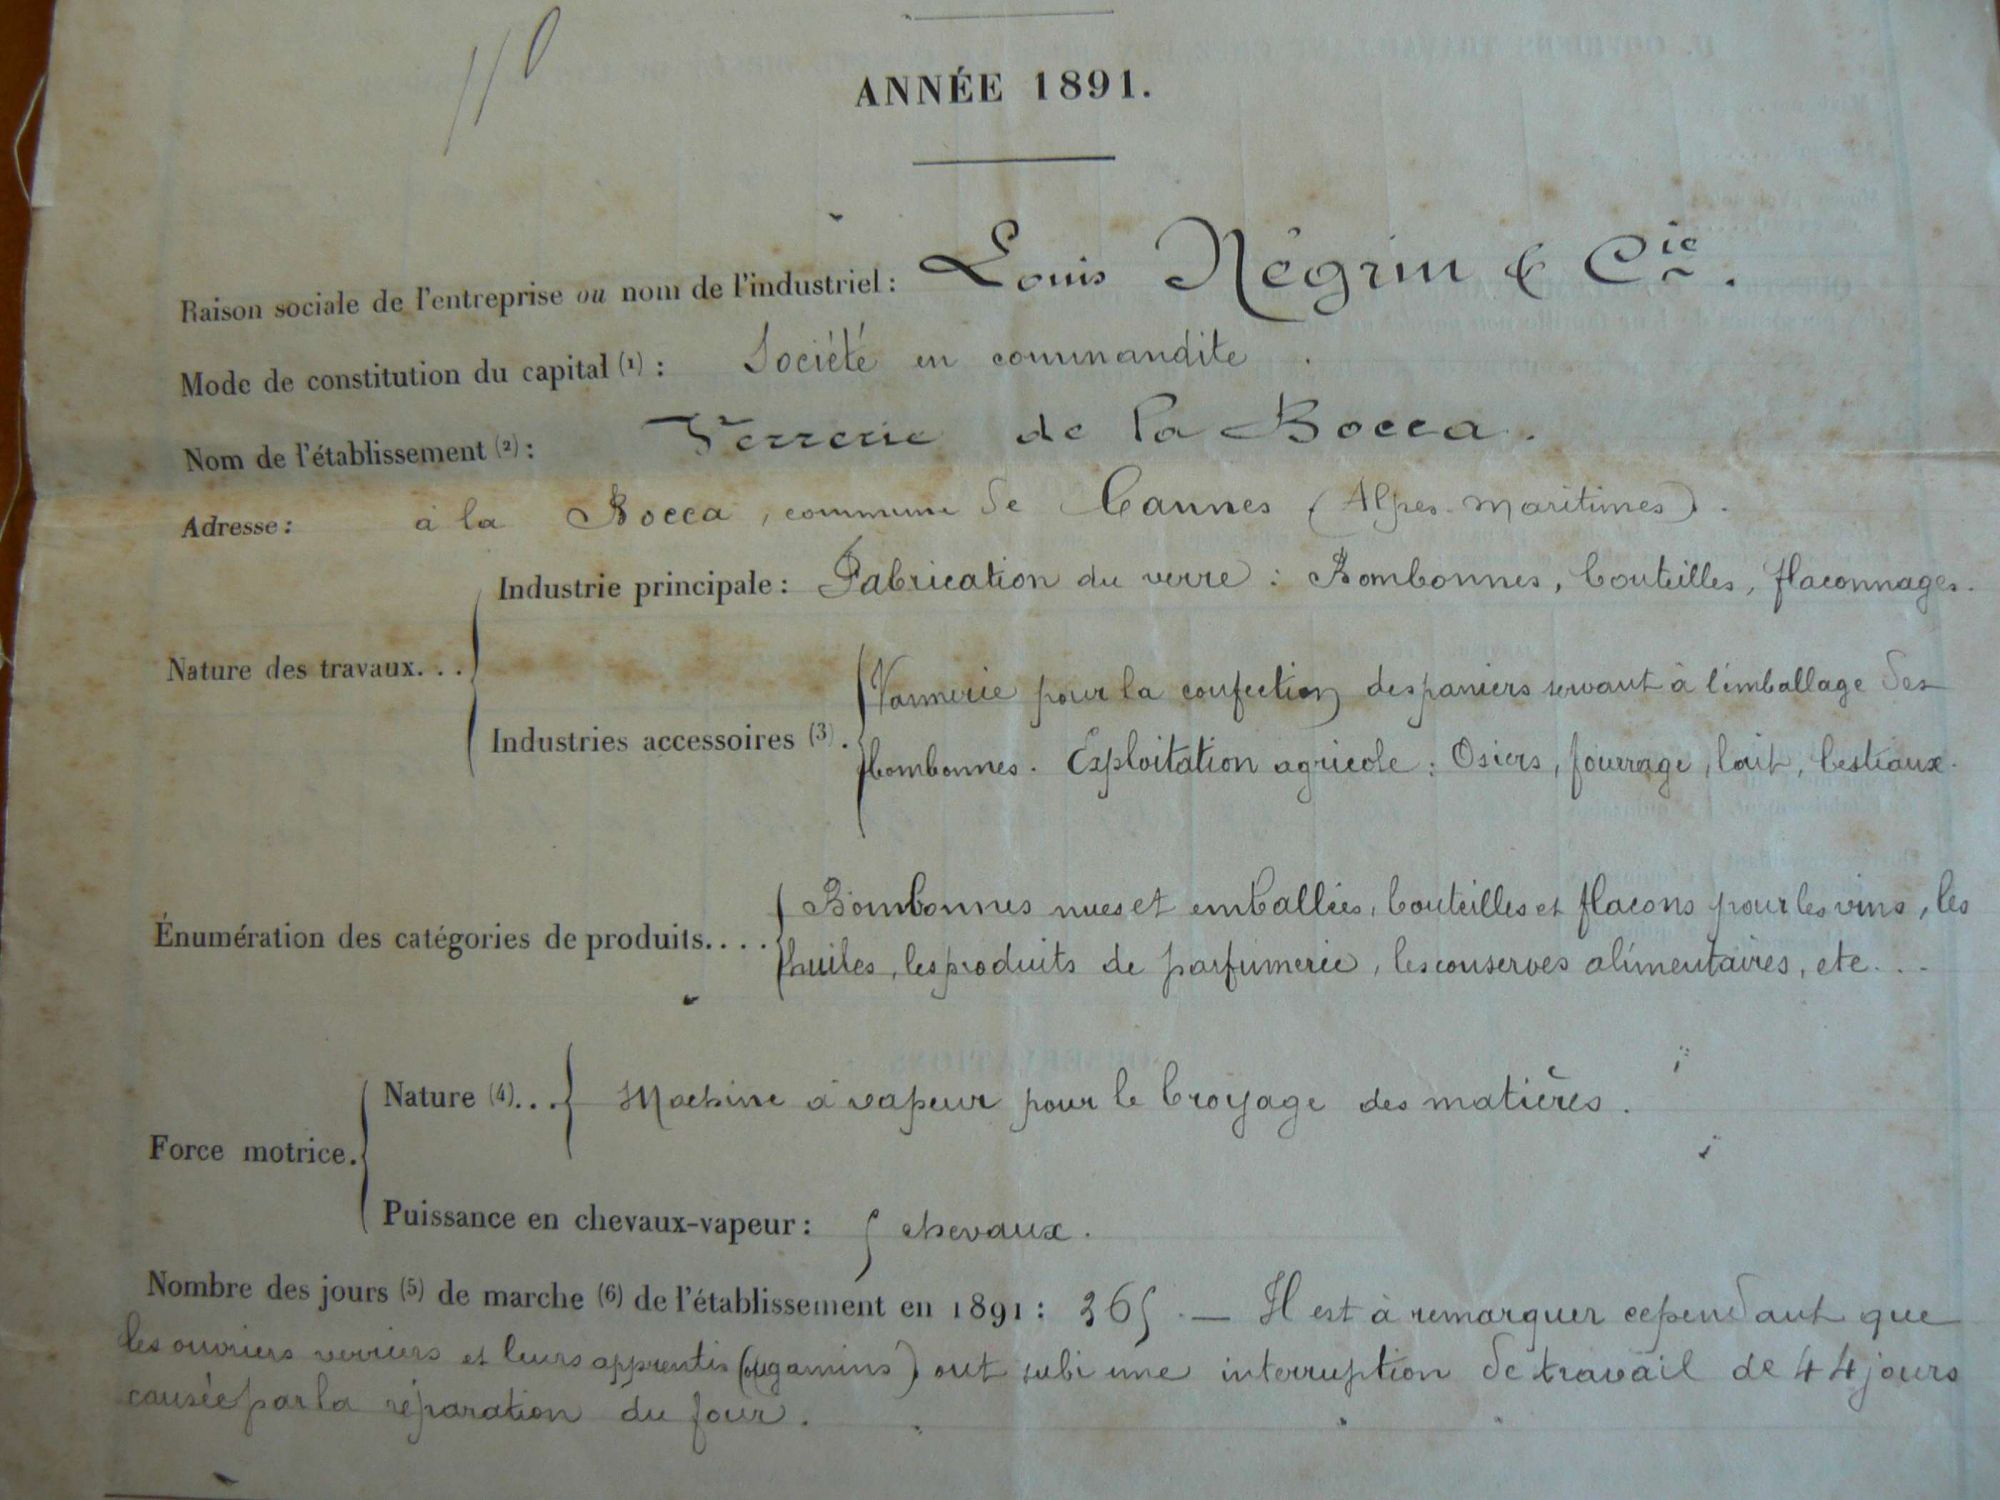 110
ANNÉE 1891.
Raison sociale de l'entreprise ou nom de l'industriel : Louis Négrin & Cie.
Mode de constitution du capital (1) : Société en commandite.
Nom de l'établissement (2) : Verrerie de la Bocca.
Adresse : à la Bocca, commune de Cannes (Alpes-Maritimes).
Industrie principale : Fabrication du verre : Bombonnes, bouteilles, flaconnages.
Nature des travaux...
Vannerie pour la confection des paniers servant à l'emballage des
Industries accessoires (3).
bombonnes. Exploitation agricole : Osiers, fourrage, lait, bestiaux.
Bombonnes nues et emballées, bouteilles et flacons pour les vins, les
Énumération des catégories de produits....
huiles, les produits de parfumerie, les conserves alimentaires, etc...
Nature (4)... Machine à vapeur pour le broyage des matières.
Force motrice.
Puissance en chevaux-vapeur : 5 chevaux.
Nombre des jours (5) de marche (6) de l'établissement en 1891 : 365. — Il est à remarquer cependant que
les ouvriers verriers et leurs apprentis (ou gamins) ont subi une interruption de travail de 44 jours
causée par la réparation du four.